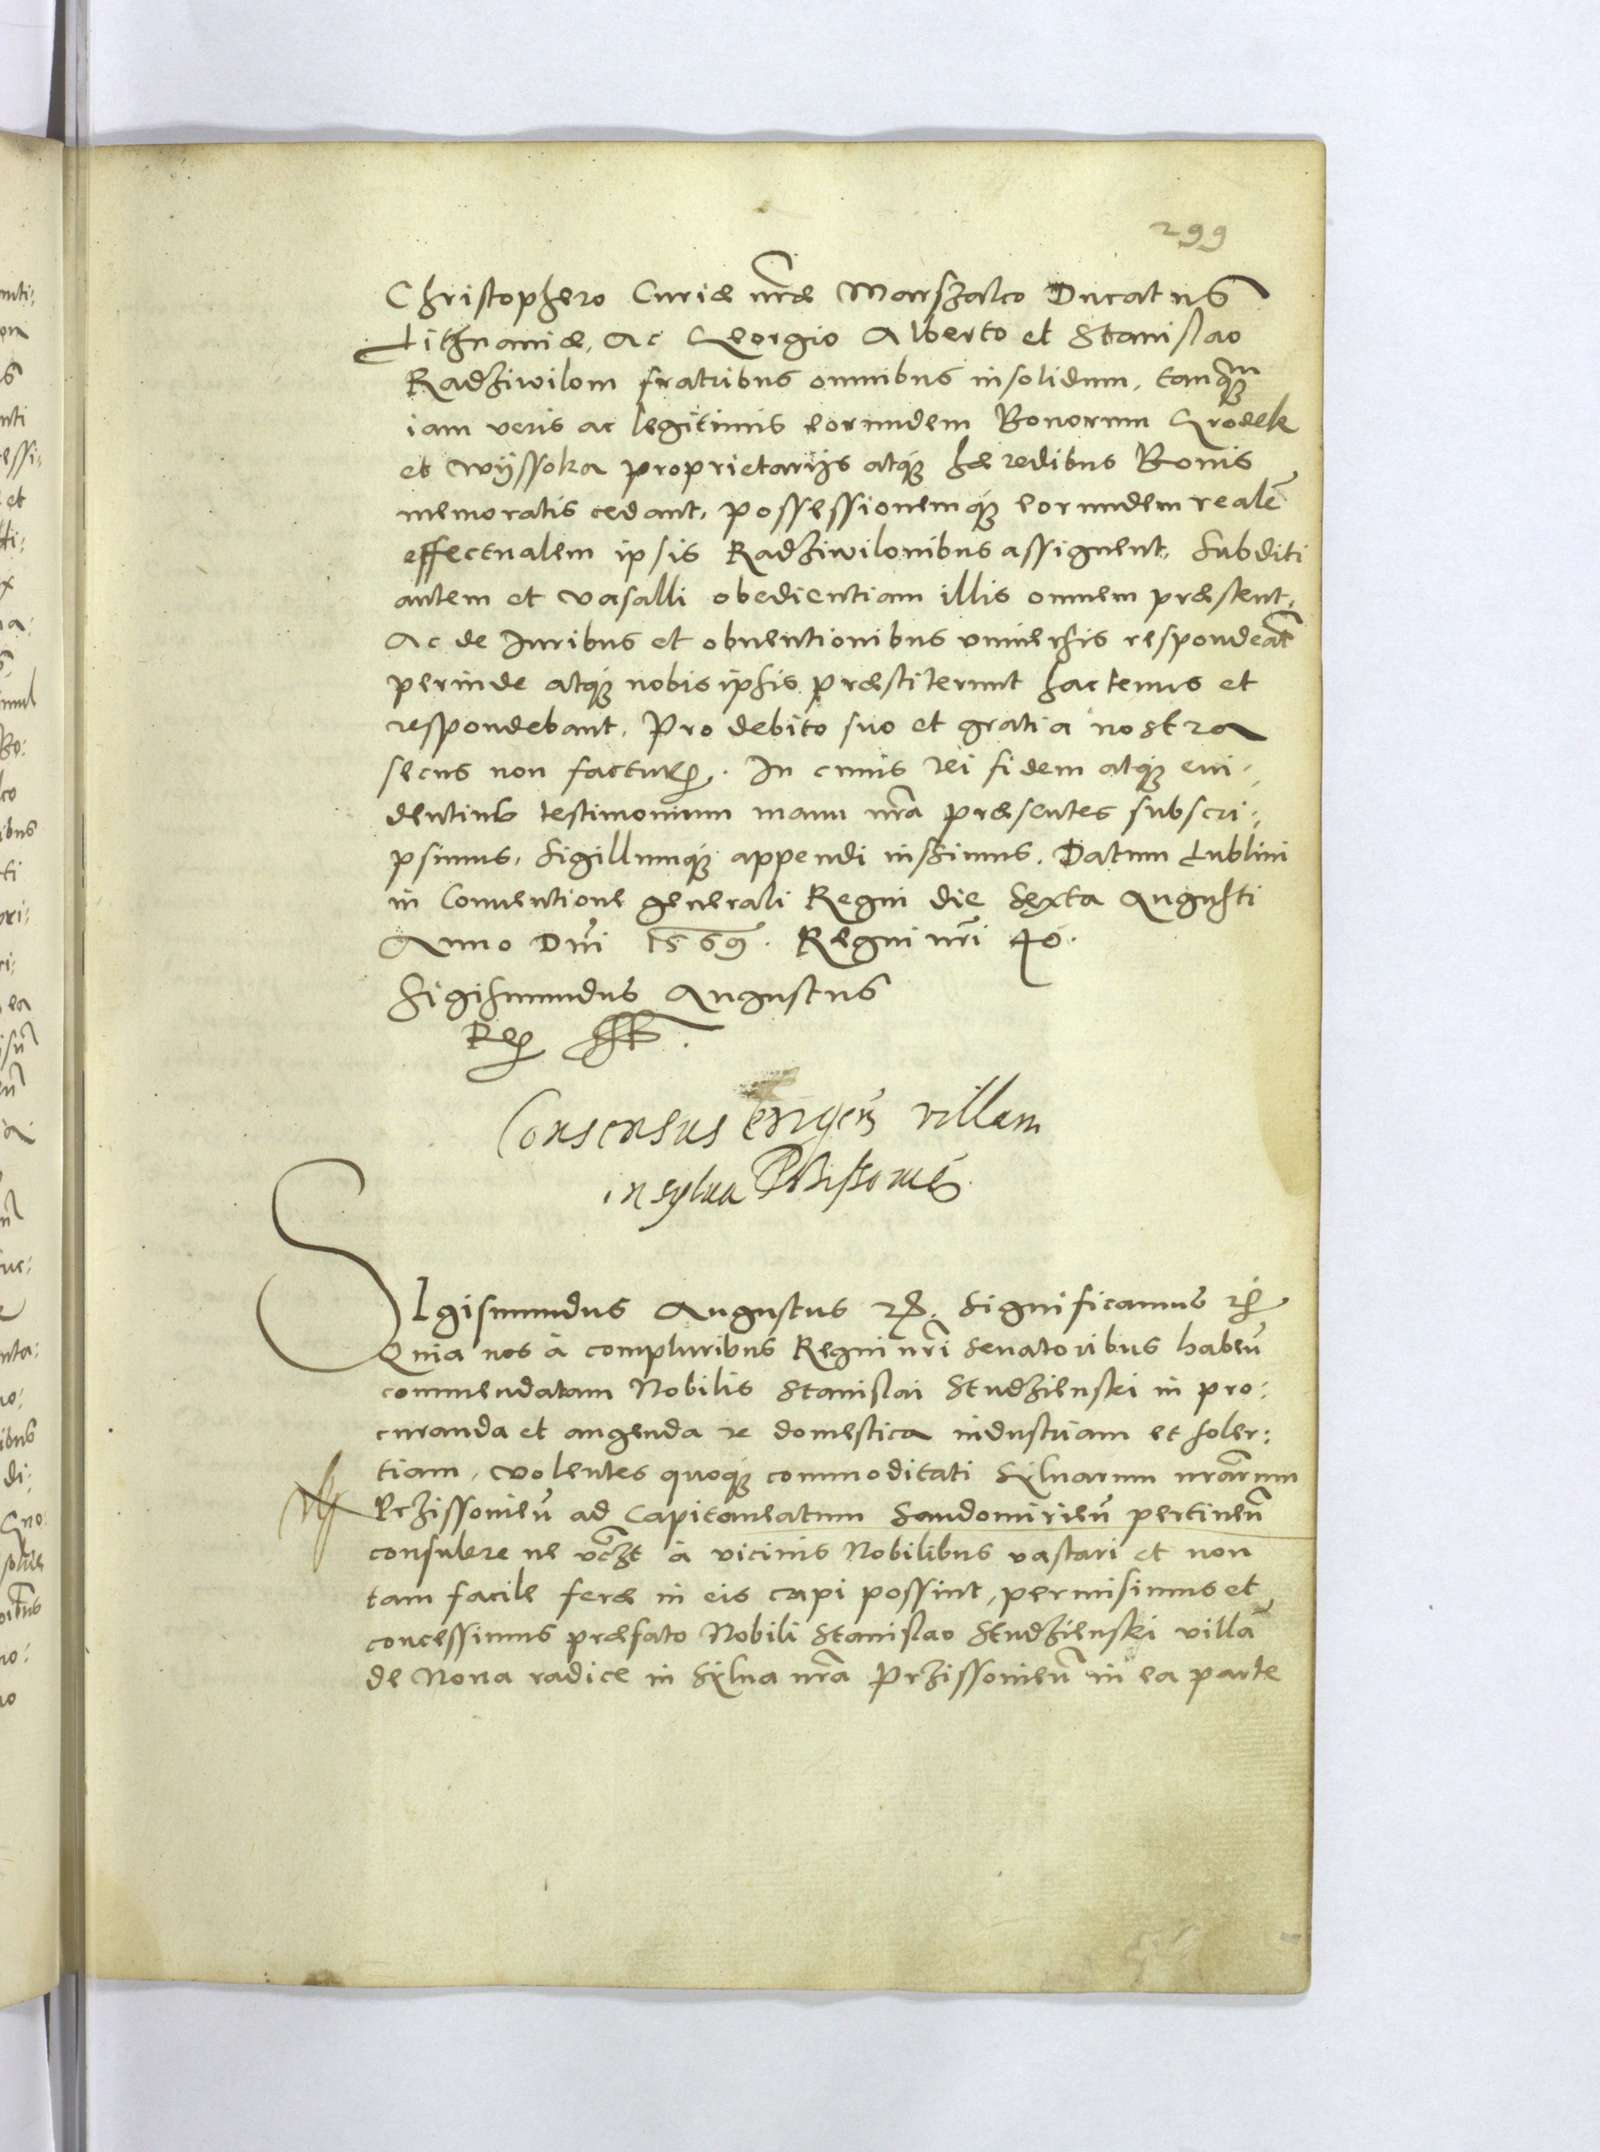 299
Christophero Curiæ nr̄æ Marszalco Ducatus
Lithuaniæ, Ac Georgio Alberto et Stanislao
Radziwilom fratribus omnibus insolidum, tanq̃ȝ
iam veris ac legitimis eorundem Bonorum Grodek
et Wÿssoka proprietarijs atq́ȝ hæredibus Bonis
memoratis cedant, possessionemq́ȝ eorundem realē
effectualem ipsis Radziwilonibus assignent, Subditi
autem et vasalli obedientiam illis omnem præstent,
Ac de Juribus et obuentionibus vniuersis respondeāt
perinde atq́ȝ nobis ipsis præstiterunt hactenus et
respondebant, Pro debito suo et gratia nostra
secus non factur. In cuius rei fidem atq́ȝ eui-
dentius testimonium manu nr̄a præsentes subscri-
psimus, Sigillumq́ȝ appendi iussimus. Datum Lublini
in Conuentione generali Regni die Sexta Augusti
Anno Dn̄i 1569. Regni nr̄i 40.
Sigismundus Augustus
Rex
Consensus villam
in sylua
SIgismundus Augustus ꝛc̄. Significamus ꝛc̄
Quia nos à compluribus Regni nr̄i Senatoribus habeū
commendatam Nobilis Stanislai Studzienski in pro-
curanda et augenda re domestica industriam et soler-
tiam, volentes quoq́ȝ commoditati Syluarum nr̄arum
Przissouieū ad Capitaneatum Sandomirieū pertineū
consulere ne à vicinis Nobilibus vastari et non
tam facile feræ in eis capi possint, permisimus et
concessimus præfato Nobili Stanislao Studzienski villā
de Noua radice in Sylua nr̄a Przissouieū in ea parte